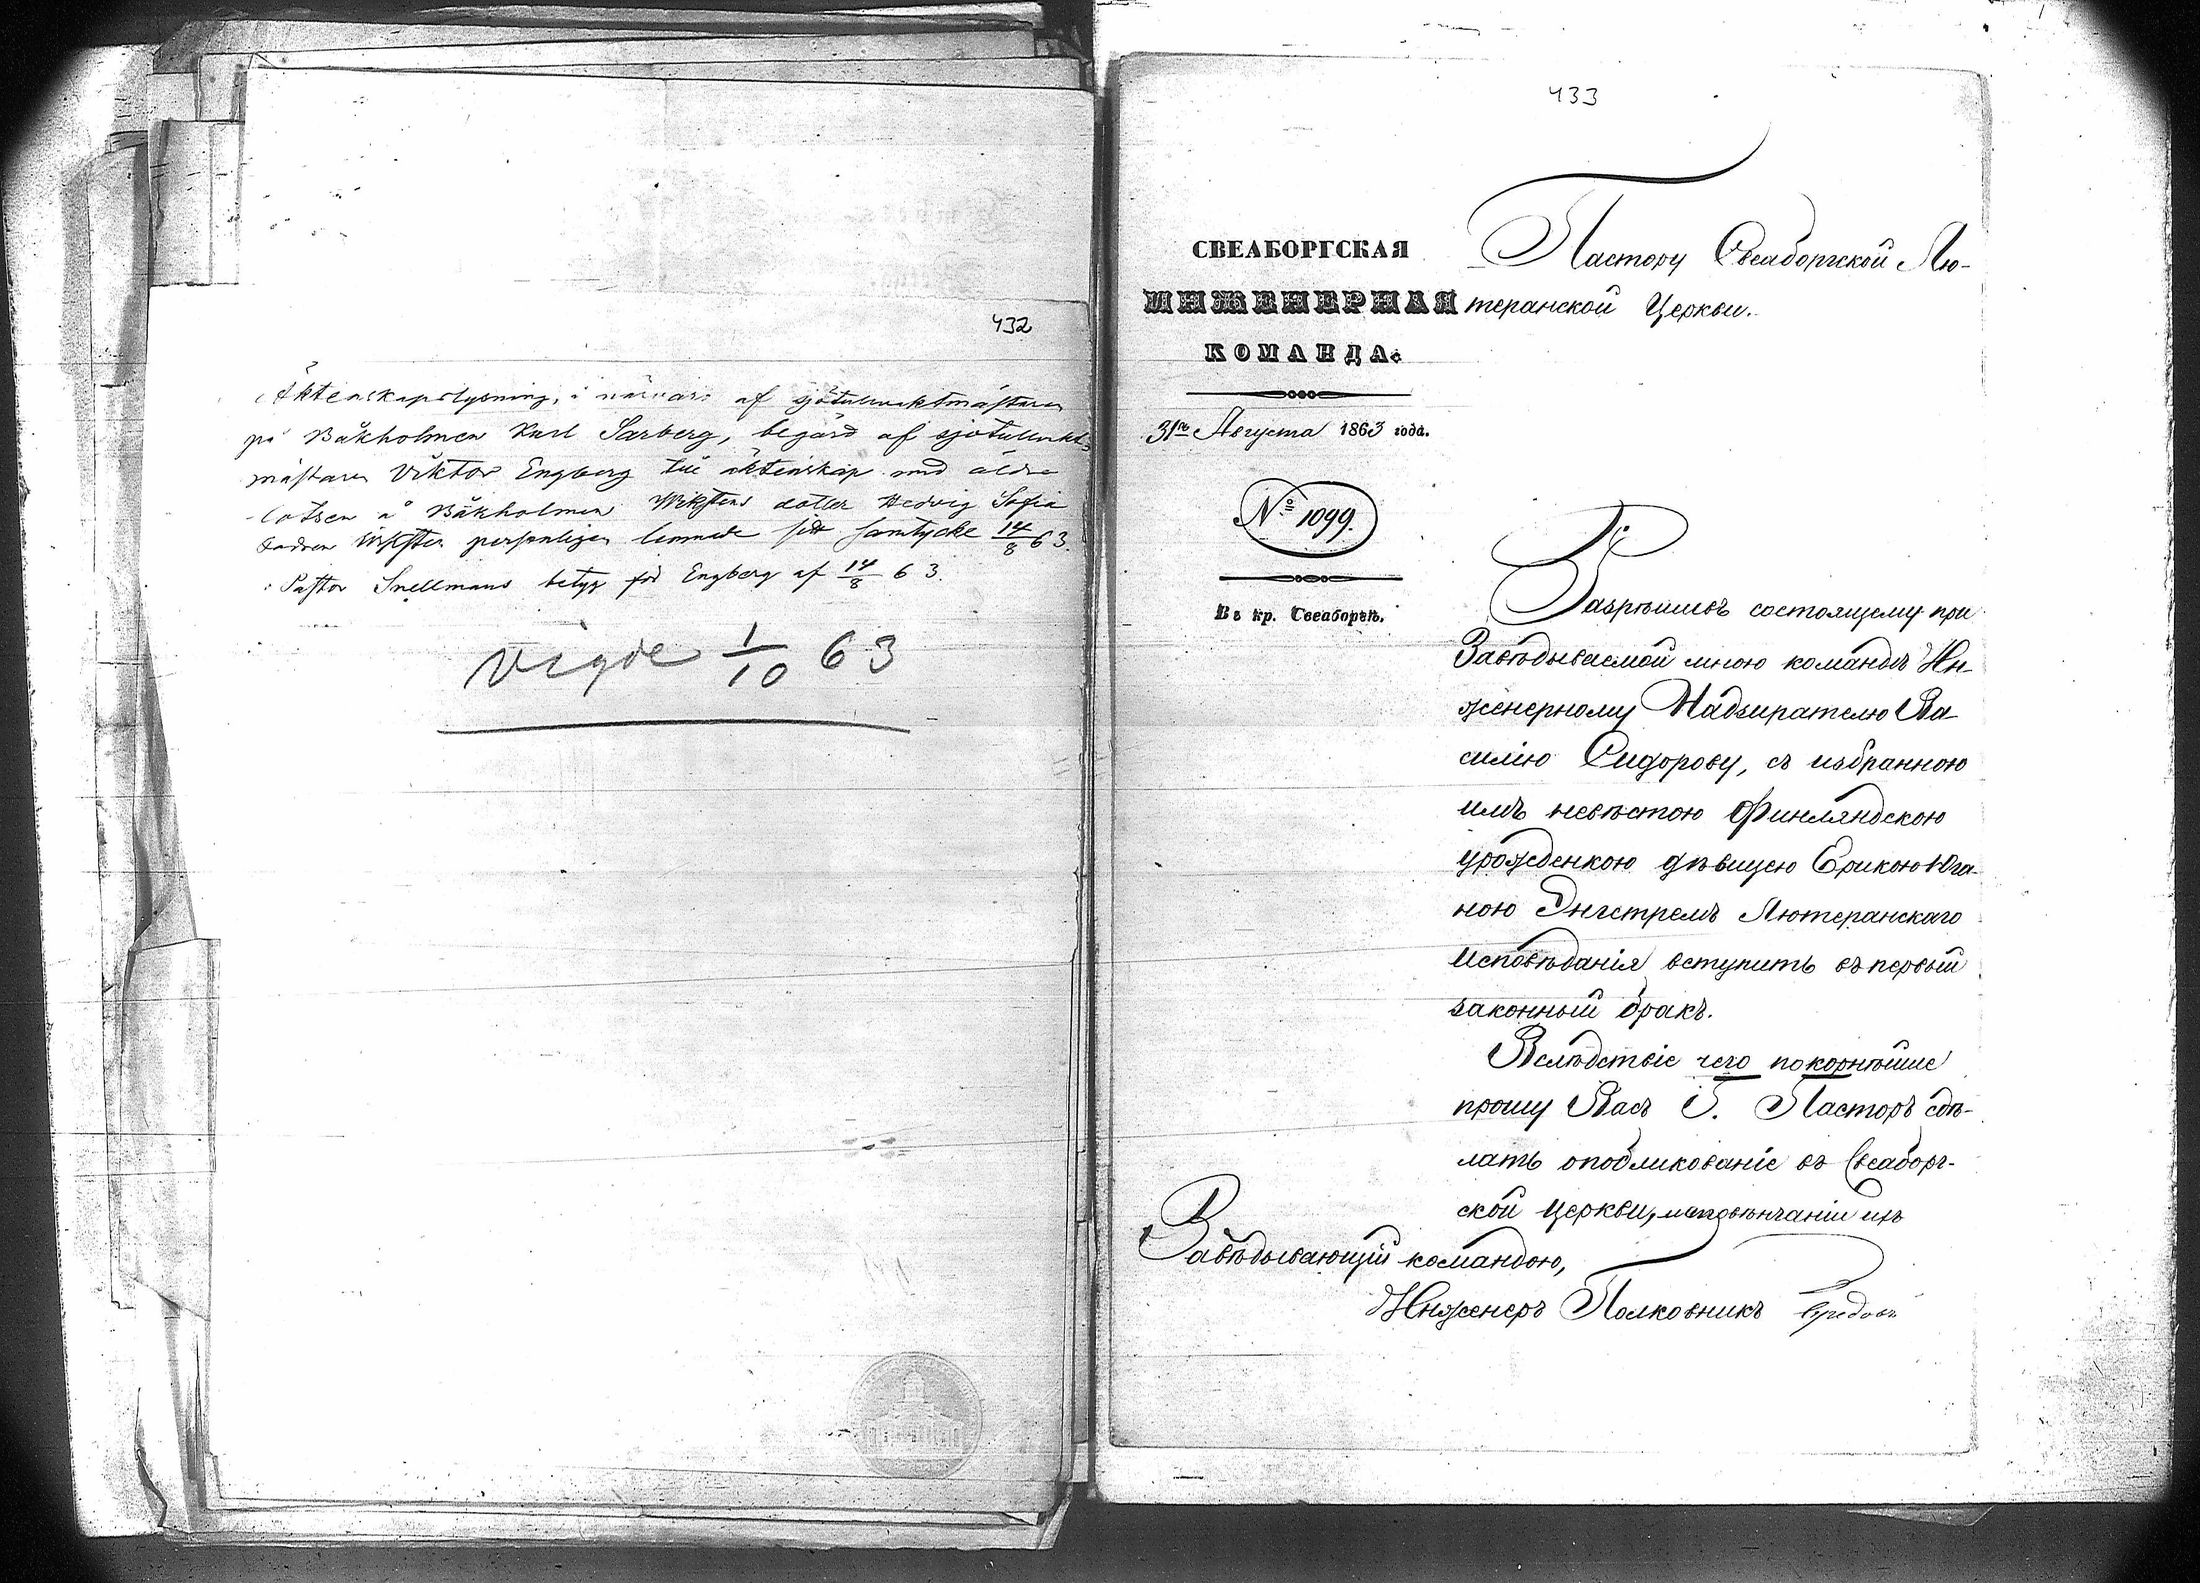 432
Äktenskapslysning, i närvaro af sjötullvaktmästaren
på Båkholmen Karl Sarberg, begärd af sjötullvakt-
mästaren Viktor Engberg till äktenskap med äldre
lotsen å Båkholmen Wiksténs dotter Hedvig Sofia
Fadren Wikstén personligen lemnade sitt samtycke 14/8 63.
Pastor Snellmans betyg för Engberg af 14/8 63.
Vigde 1/10 63
433
СВЕАБОРГСКАЯ
ИНЖЕНЕРНАЯ
КОМАНДА.
31го Августа 1863 года.
№ 1099.
Въ кр. Свеаборгѣ.
Пастору Свеаборгской Лю-
теранской Церкви.
Разрѣшивъ состоящему при
Завѣдываемой мною командѣ Ин-
женерному Надзирателю Ва-
силію Сидорову, съ избранною
имъ невѣстою Финляндскою
урожденкою дѣвицею Ерикою Юга-
ною Энгстремъ Лютеранскаго
Исповѣданія вступить въ первый
законный бракъ.
Вслѣдствіе чего покорнѣйше
прошу Васъ Г. Пасторъ сдѣ-
лать опобликованіе въ Свеаборг-
ской церкви, повѣнчаніи ихъ
Завѣдывающій командою,
Инженеръ Полковникъ